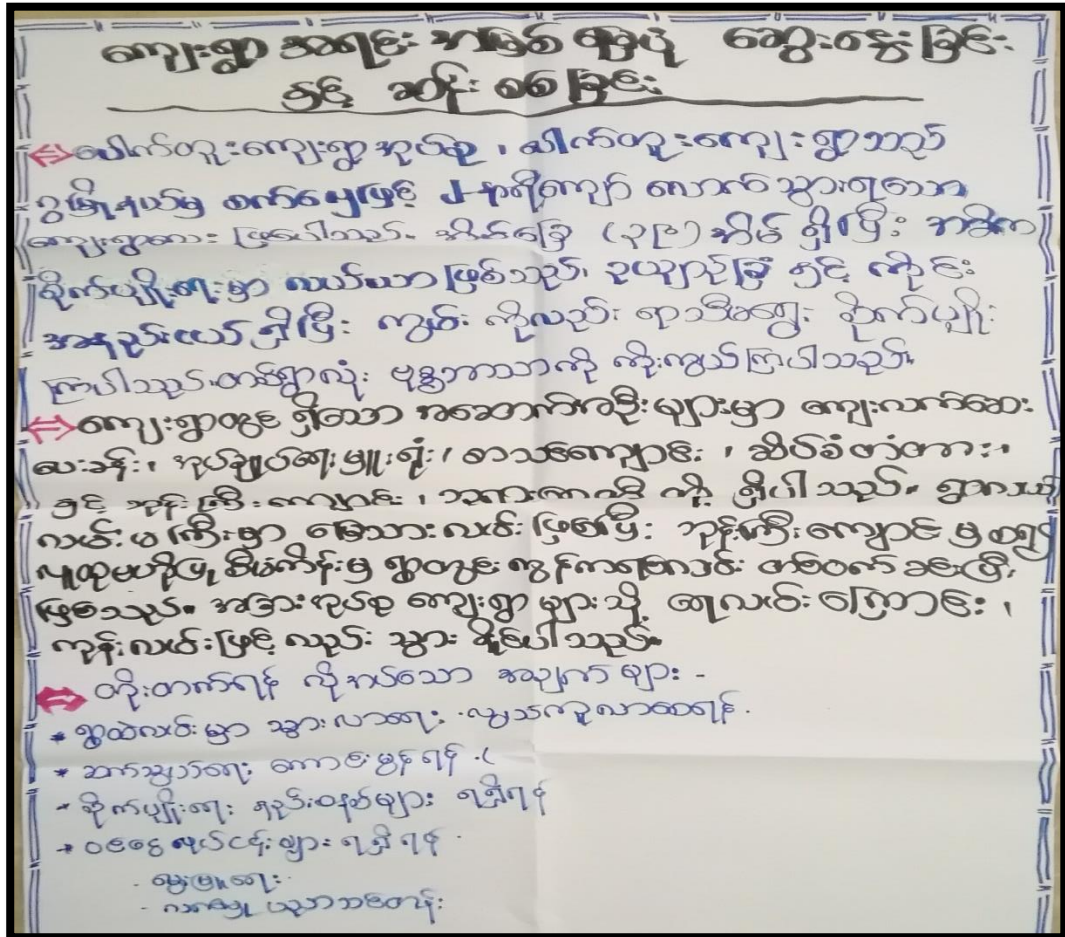 ကျေးရွာ အရင်းအမြစ် ရှာပုံ ဆွေးနွေးခြင်း
နှင့် ဆန်းစစ်ခြင်း
ပေါက်တူးကျေးရွာအုပ်စု၊ ပေါက်တူးကျေးရွာသည်
မြို့နယ်မှ စက်လှေဖြင့် ၂ နာရီကျော် လောက် သွားရသော
ကျေးရွာလေး ဖြစ်ပါသည်။ အိမ်ခြေ အိမ် ရှိပြီး အဓိက
စိုက်ပျိုးရေးမှာ လယ်ယာဖြစ်သည်၊ ဥယျာဉ်ခြံ နှင့် ကိုင်း
အနည်းငယ်ရှိပြီး ကျွန်းကိုလည်း ရာသီမရွေး စိုက်ပျိုး
ကြပါသည်။ တစ်ရွာလုံး ဗုဒ္ဓဘာသာကို ကိုးကွယ်ကြပါသည်။
ကျေးရွာတွင် ရှိသော အဆောက်အဦးများမှာ ကျေးလက်ဆေး
ပေးခန်း၊ အုပ်ချုပ်ရေးမှူးရုံး၊ စာသင်ကျောင်း၊ ဆိပ်ခံတံတား၊
နှင့် ဘုန်းကြီးကျောင်း၊ တို့ ရှိပါသည်။ ရွာလယ်
လမ်းမကြီးမှာ မြေသားလမ်းဖြစ်ပြီး ဘုန်းကြီးကျောင်းမှ စ၍
လူထုဗဟိုပြု စီမံကိန်းမှ ရွာတွင်း ကွန်ကရစ်လမ်း
ဖြစ်သည်။ အခြားအုပ်စု ကျေးရွာများသို့ ရေလမ်းကြောင်း၊
ကုန်းလမ်းဖြင့် လည်း သွားနိုင်ပါသည်။
တိုးတက်ရန် လိုအပ်သော အချက်များ -
* ရွာထဲလမ်းမှာ သွားလာရေး လွယ်ကူလာစေရန်.
* ဆက်သွယ်ရေး ကောင်းမွန်ရန်.
* စိုက်ပျိုးရေး နည်းစနစ်များ ရရှိရန်
* ရရှိရန်
- မွေးမြူရေး
- ပညာသင်တန်း